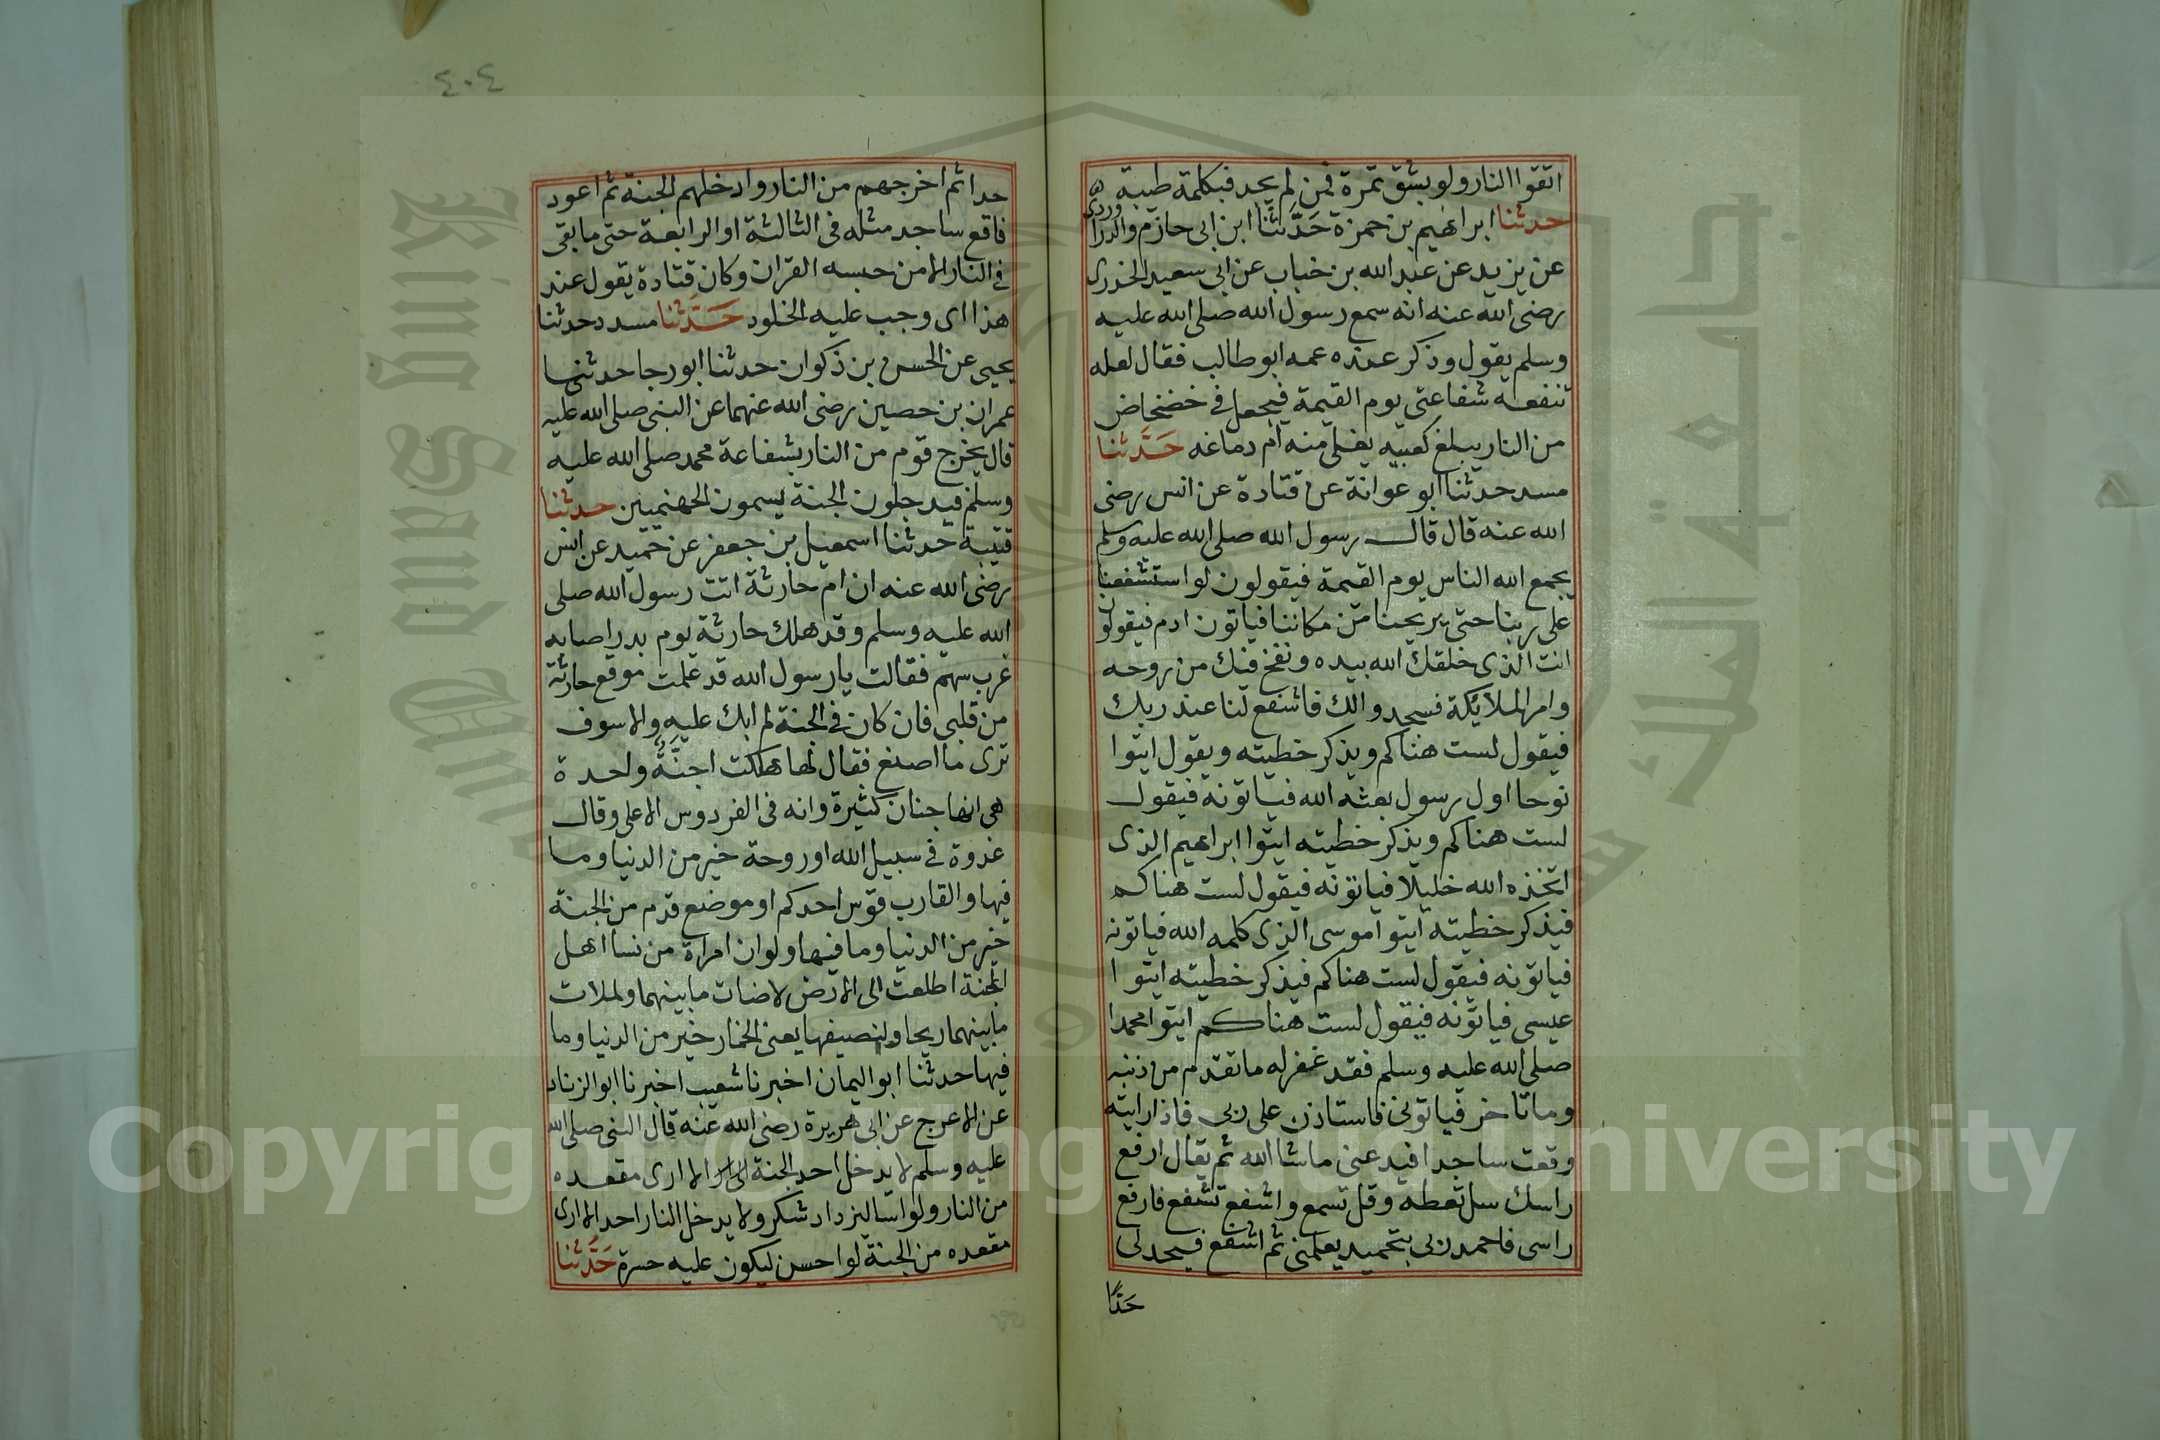 اتقوا النار ولو بشق تمرة فمن لم يجد فبكلمة طيبة
حدثنا ابراهيم بن حمزة حدثنا ابن ابى حازم والدراوردى
عن يزيد عن عبد الله بن خباب عن ابى سعيد الخدرى
رضى الله عنه انه سمع رسول الله صلى الله عليه
وسلم يقول وذكر عنده عمه ابو طالب فقال لعله
تنفعه شفاعتى يوم القيمة فيجعل فى ضحضاح
من النار يبلغ كعبيه يغلى منه ام دماغه حدثنا
مسدد حدثنا ابو عوانة عن قتادة عن انس رضى
الله عنه قال قال رسول الله صلى الله عليه وسلم
يجمع الله الناس يوم القيمة فيقولون لو استشفعنا
على ربنا حتى يريحنا من مكاننا فياتون ادم فيقولون
انت الذى خلقك الله بيده ونفخ فيك من روحه
وامر الملائكة فسجدوا لك فاشفع لنا عند ربك
فيقول لست هناكم ويذكر خطيته ويقول ايتوا
نوحا اول رسول بعثه الله فياتونه فيقول
لست هناكم ويذكر خطيته ايتوا ابراهيم الذى
اتخذه الله خليلا فياتونه فيقول لست هناكم
فيذكر خطيته ايتوا موسى الذى كلمه الله فياتونه
فياتونه فيقول لست هناكم فيذكر خطيته ايتوا
عيسى فياتونه فيقول لست هناكم ايتوا محمدا
صلى الله عليه وسلم فقد غفر له ما تقدم من ذنبه
وما تاخر فياتونى فاستاذن على ربى فاذا رايته
وقعت ساجدا فيدعنى ما شا الله ثم يقال ارفع
راسك سل تعطه وقل تسمع واشفع تشفع فارفع
راسى فاحمد ربى بتحميد يعلمنى ثم اشفع فيحد لى
حدًّا
٤٠٤
حدا ثم اخرجهم من النار وادخلهم الجنة ثم اعود
فاقع ساجد مثله فى الثالثة او الرابعة حتى ما بقى
فى النار الا من حبسه القران وكان قتادة يقول عند
هذا اى وجب عليه الخلود حدثنا مسدد حدثنا
يحيى عن الحسن بن ذكوان حدثنا ابو رجا حدثنا
عمران بن حصين رضى الله عنهما عن النبى صلى الله عليه
قال يخرج قوم من النار بشفاعة محمد صلى الله عليه
وسلم فيدخلون الجنة يسمون الجهنميين حدثنا
قتيبة حدثنا اسمعيل بن جعفر عن حميد عن انس
رضى الله عنه ان ام حارثة اتت رسول الله صلى
الله عليه وسلم وقد هلك حارثة يوم بدر اصابه
غرب سهم فقالت يا رسول الله قد علمت موقع حارثة
من قلبى فان كان فى الجنة لم ابك عليه والا سوف
ترى ما اصنع فقال لها هلكت اجنَّةٌ واحدة
هى انها جنان كثيرة وانه فى الفردوس الاعلى وقال
غدوة فى سبيل الله او روحة خير من الدنيا وما
فيها والقارب قوس احدكم او موضع قدم من الجنة
خير من الدنيا وما فيها ولو ان امراة من نسا اهل
الجنة اطلعت الى الارض لاضات ما بينهما ولملات
ما بينهما ريحا ولنصيفها يعنى الخمار خير من الدنيا وما
فيها حدثنا ابو اليمان اخبرنا شعيب اخبرنا ابو الزناد
عن الاعرج عن ابى هريرة رضى الله عنه قال النبى صلى الله
عليه وسلم لا يدخل احد الجنة الا ارى مقعده
من النار ولو اسا ليزداد شكر ولا يدخل النار احد الا ارى
مقعده من الجنة لو احسن ليكون عليه حسرة حدثنا
King Saud University
جامعة الملك سعود
Copyright © King Saud University